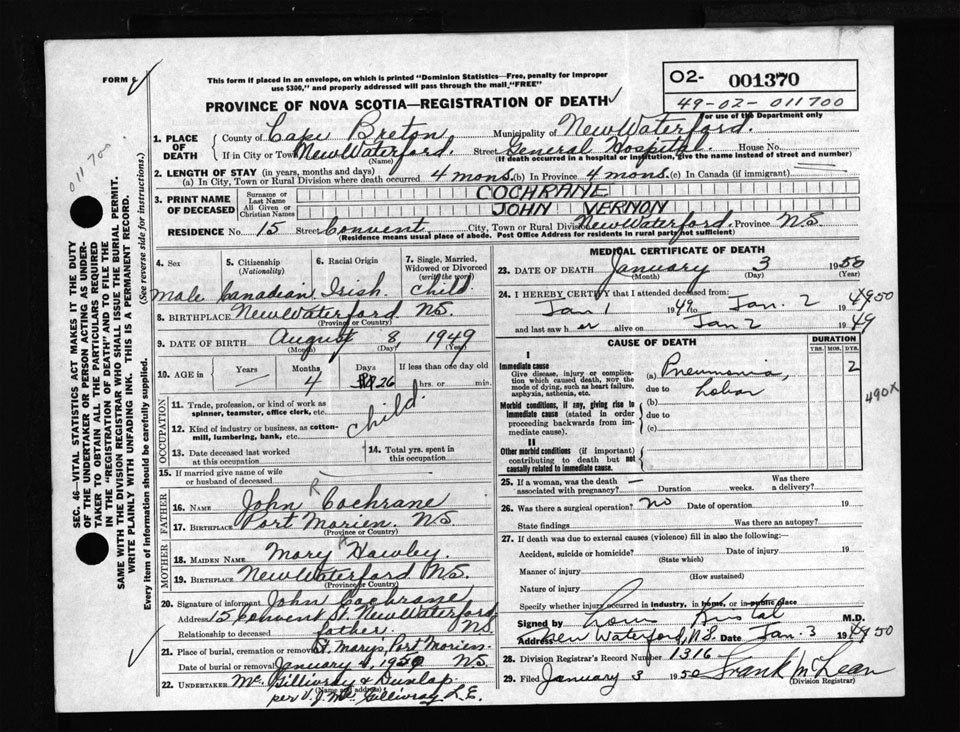 FORM 2
This form if placed in an envelope, on which is printed "Dominion Statistics—Free, penalty for improper
use $300," and properly addressed will pass through the mail "FREE"
O2- 001370
49-02-011700
For use of the Department only
PROVINCE OF NOVA SCOTIA—REGISTRATION OF DEATH
011 700
SEC. 46—VITAL STATISTICS ACT MAKES IT THE DUTY
OF THE UNDERTAKER OR PERSON ACTING AS UNDER-
TAKER TO OBTAIN ALL THE PARTICULARS REQUIRED
IN THE "REGISTRATION OF DEATH" AND TO FILE THE
SAME WITH THE DIVISION REGISTRAR WHO SHALL ISSUE THE BURIAL PERMIT.
WRITE PLAINLY WITH UNFADING INK. THIS IS A PERMANENT RECORD.
Every item of information should be carefully supplied. (See reverse side for instructions.)
1. PLACE OF DEATH
County of Cape Breton Municipality of New Waterford.
If in City or Town New Waterford. Street General Hospital. House No.
(Name) (If death occurred in a hospital or institution, give the name instead of street and number)
2. LENGTH OF STAY (in years, months and days)
(a) In City, Town or Rural Division where death occurred 4 mons. (b) In Province 4 mons. (c) In Canada (if immigrant)
3. PRINT NAME OF DECEASED
Surname or Last Name COCHRANE
All Given or Christian Names JOHN VERNON
RESIDENCE No. 15 Street Convent City, Town or Rural Division New Waterford Province N.S
(Residence means usual place of abode. Post Office Address for residents in rural parts not sufficient)
4. Sex 5. Citizenship (Nationality) 6. Racial Origin 7. Single, Married, Widowed or Divorced (write the word)
Male Canadian Irish Child
8. BIRTHPLACE New Waterford N.S.
(Province or Country)
9. DATE OF BIRTH August 8, 1949
(Month) (Day) (Year)
10. AGE in Years — Months 4 Days 26 If less than one day old hrs. or min.
OCCUPATION
11. Trade, profession, or kind of work as spinner, teamster, office clerk, etc. child.
12. Kind of industry or business, as cotton-mill, lumbering, bank, etc.
13. Date deceased last worked at this occupation
14. Total yrs. spent in this occupation
15. If married give name of wife or husband of deceased
FATHER
16. NAME John R Cochrane
17. BIRTHPLACE Port Morien. N.S
MOTHER
18. MAIDEN NAME Mary Hawley.
19. BIRTHPLACE New Waterford N.S.
(Province or Country)
20. Signature of informant John Cochrane
Address 15 Convent St. New Waterford N.S
Relationship to deceased father.
21. Place of burial, cremation or removal St. Mary's, Port Morien.
Date of burial or removal January 4, 1950 N.S
22. UNDERTAKER McGillivray & Dunlap
(Name and address)
per V. J. McGillivray L.E.
MEDICAL CERTIFICATE OF DEATH
23. DATE OF DEATH January 3 1950
(Month) (Day) (Year)
24. I HEREBY CERTIFY that I attended deceased from:
Jan 1 1949 to Jan. 2 1949 50
and last saw her alive on Jan 2 1949
CAUSE OF DEATH DURATION
YRS. MOS. DYS.
I
Immediate cause
Give disease, injury or complication which caused death, NOT the mode of dying, such as heart failure, asphyxia, asthenia, etc.
(a) Pneumonia, 2
due to Lobar
490X
Morbid conditions, if any, giving rise to immediate cause (stated in order proceeding backwards from immediate cause).
(b)
due to
(c)
II
Other morbid conditions (if important) contributing to death but not causally related to immediate cause.
25. If a woman, was the death associated with pregnancy? — Duration weeks. Was there a delivery?
26. Was there a surgical operation? no Date of operation 19
State findings Was there an autopsy?
27. If death was due to external causes (violence) fill in also the following:—
Accident, suicide or homicide? Date of injury 19
(State which)
Manner of injury
(How sustained)
Nature of injury
Specify whether injury occurred in industry, in home, or in public place
Signed by Louis Kristal M.D.
Address New Waterford, N.S. Date Jan. 3 1949 50
28. Division Registrar's Record Number 1316
29. Filed January 3 1950 Frank McLean
(Division Registrar)